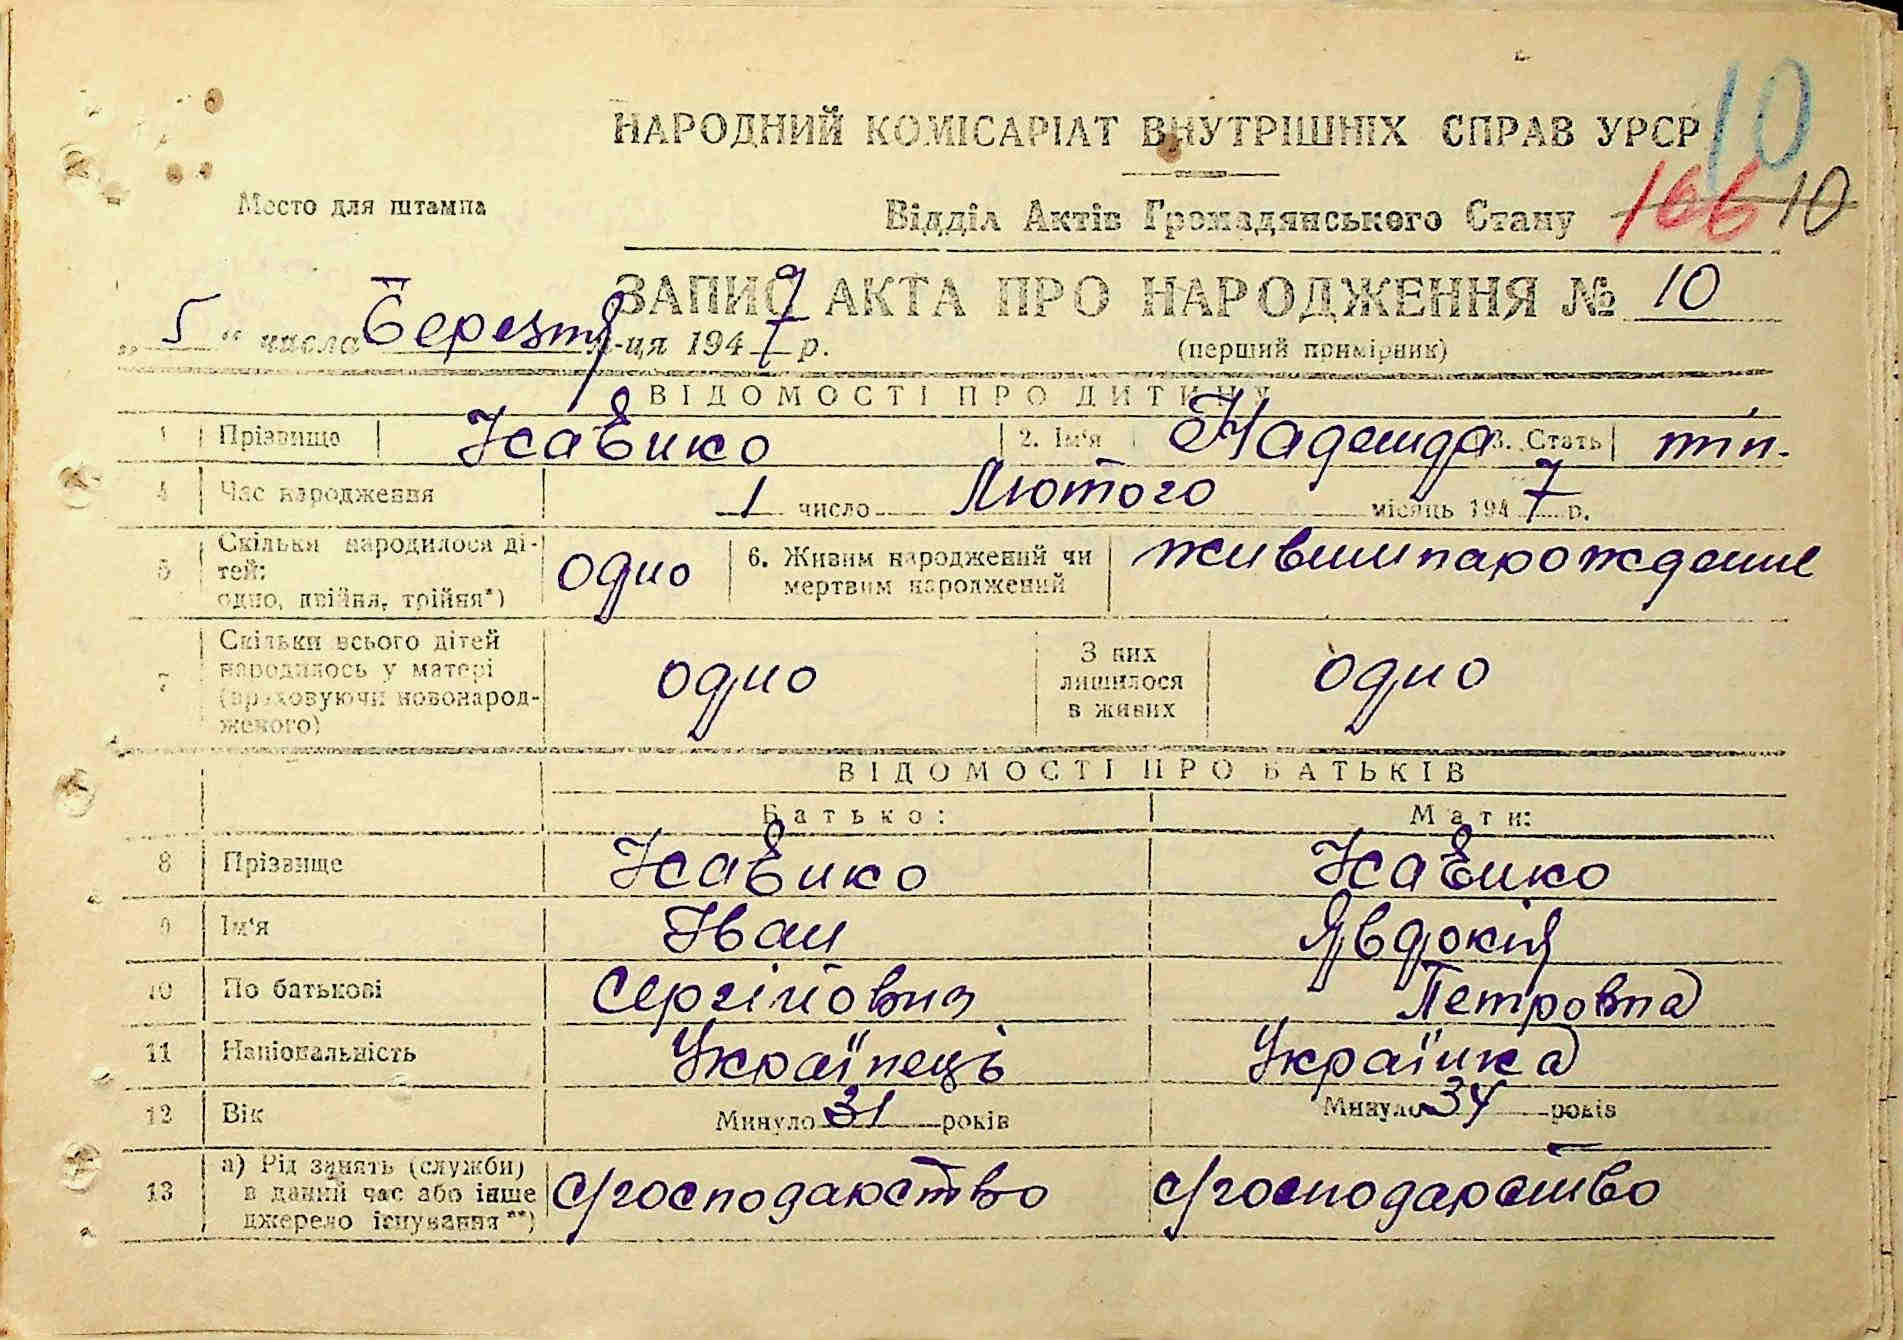 10
НАРОДНИЙ КОМІСАРІАТ ВНУТРІШНІХ СПРАВ УРСР
Место для штампа
Відділ Актів Громадянського Стану 106 10
ЗАПИС АКТА ПРО НАРОДЖЕННЯ № 10
„ 5 “ числа Березня м-ця 1947 р.
(перший примірник)
ВІДОМОСТІ ПРО ДИТИНУ
1 Прізвище Исаенко 2. Ім'я Надежда 3. Стать жін.
4 Час народження 1 число Лютого місяць 1947 р.
5 Скільки народилося ді-
тей:
одно, двійня, трійня*) одно
6. Живим народжений чи
мертвим народжений
7 Скільки всього дітей
народилось у матері
(враховуючи новонарод-
женого) одно
З них
лишилося
в живих одно
ВІДОМОСТІ ПРО БАТЬКІВ
Батько: Мати:
8 Прізвище Исаенко Исаенко
9 Ім'я Іван Явдокія
10 По батькові Сергійович Петровна
11 Національність Українець Українка
12 Вік Минуло 31 років Минуло 34 років
13 а) Рід занять (служби)
в даний час або інше
джерело існування**) с/господарство с/господарство